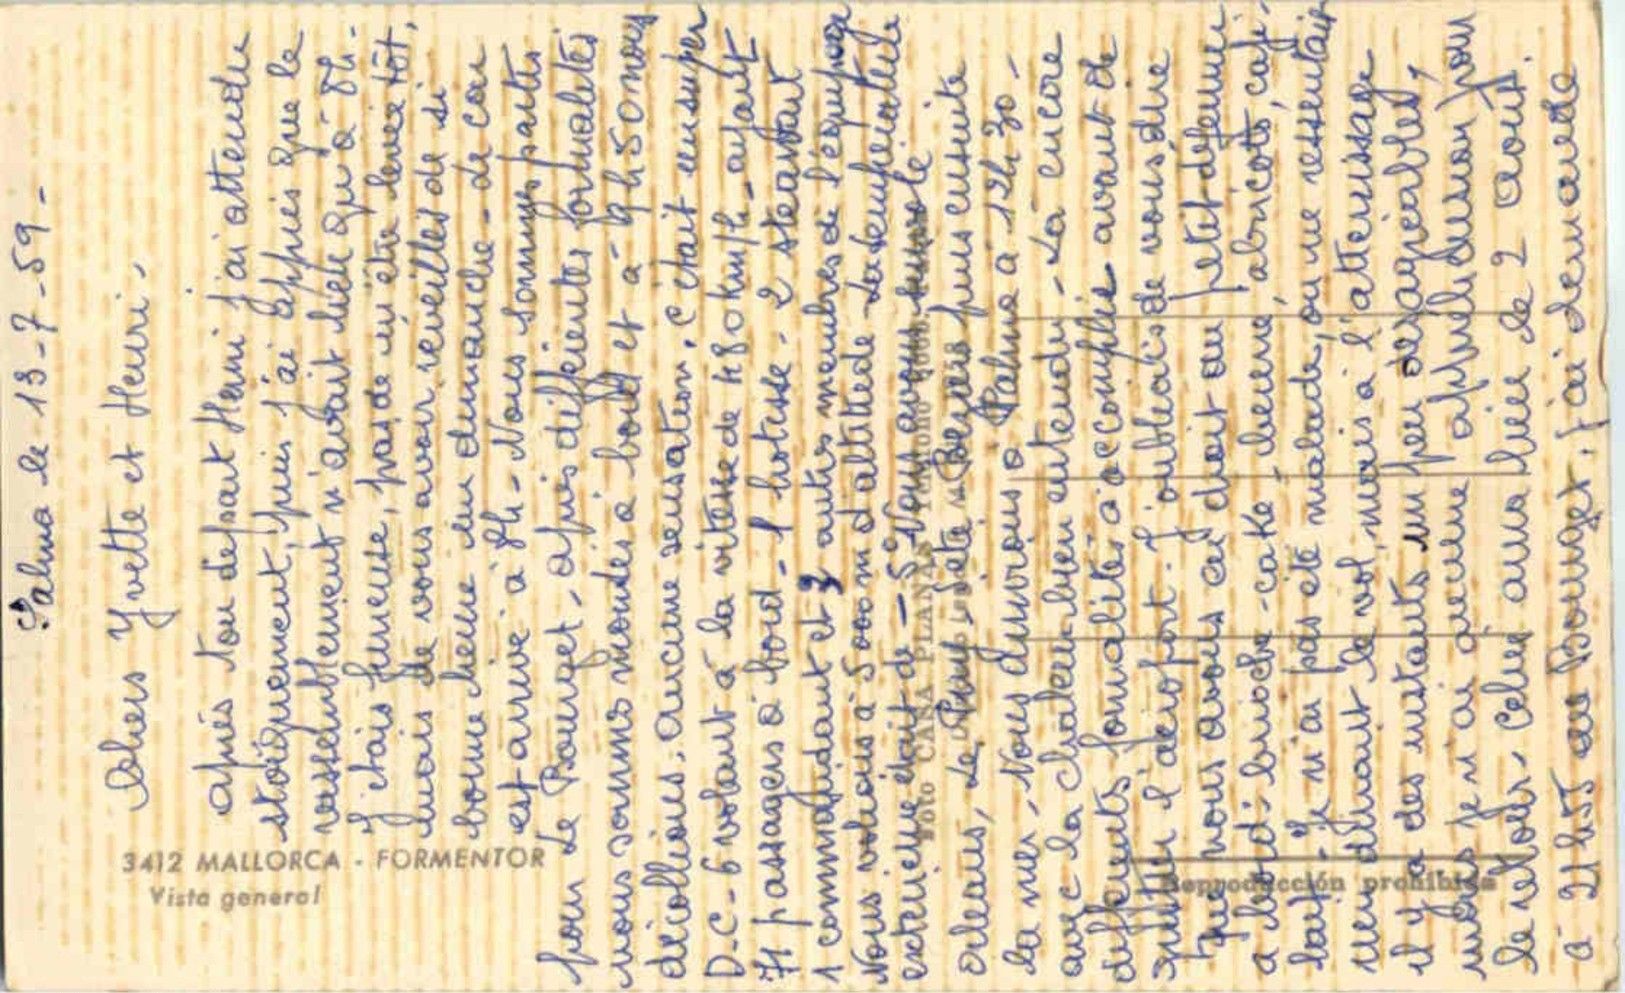 Palma le 13-7-59-
Chers Yvette et Henri,
après ton départ Henri j'ai attendu
stoïquement, puis j'ai appris que le
rassemblement n'avait lieu qu'à 8h-
J'étais furieuse, pas de m'être levée tôt,
mais de vous avoir réveillés de si
bonne heure un dimanche - Le car
est arrivé à 8h - Nous sommes partis
pour Le Bourget, après différentes formalités
nous sommes montés à bord et à 9h50 nous
décollions, aucune sensation, c'était en super
D.C-6 volant à la vitesse de 480 km/h- ayant
71 passagers à bord - 1 hotesse - 2 stewart
1 commandant et 3 autres membres de l'équipage
Nous volions à 5000m d'altitude La température
extérieure était de - 5° Nous avons survolé
Orléans, Le Puy, Sète, puis ensuite
la mer, Nous arrivions à Palma à 12h30-
avec la chaleur bien entendu - Là encore
différents formalités à accomplir avant de
quitter l'aéroport. J'oubliais de vous dire
que nous avons eu droit au petit déjeuner
à bord: brioche - cake - beurre, abricots, café-
lait - Je n'ai pas été malade, on ne ressentait
rien durant le vol, mais à l'atterrissage
il y a des instants un peu désagréables,
mais je n'ai aucune appréhension pour
le retour. Celui aura lieu le 2 août.
à 21h55 au Bourget, j'ai demandé
3412 MALLORCA - FORMENTOR
Vista general
FOTO CASA PLANAS
Reproducción prohibida